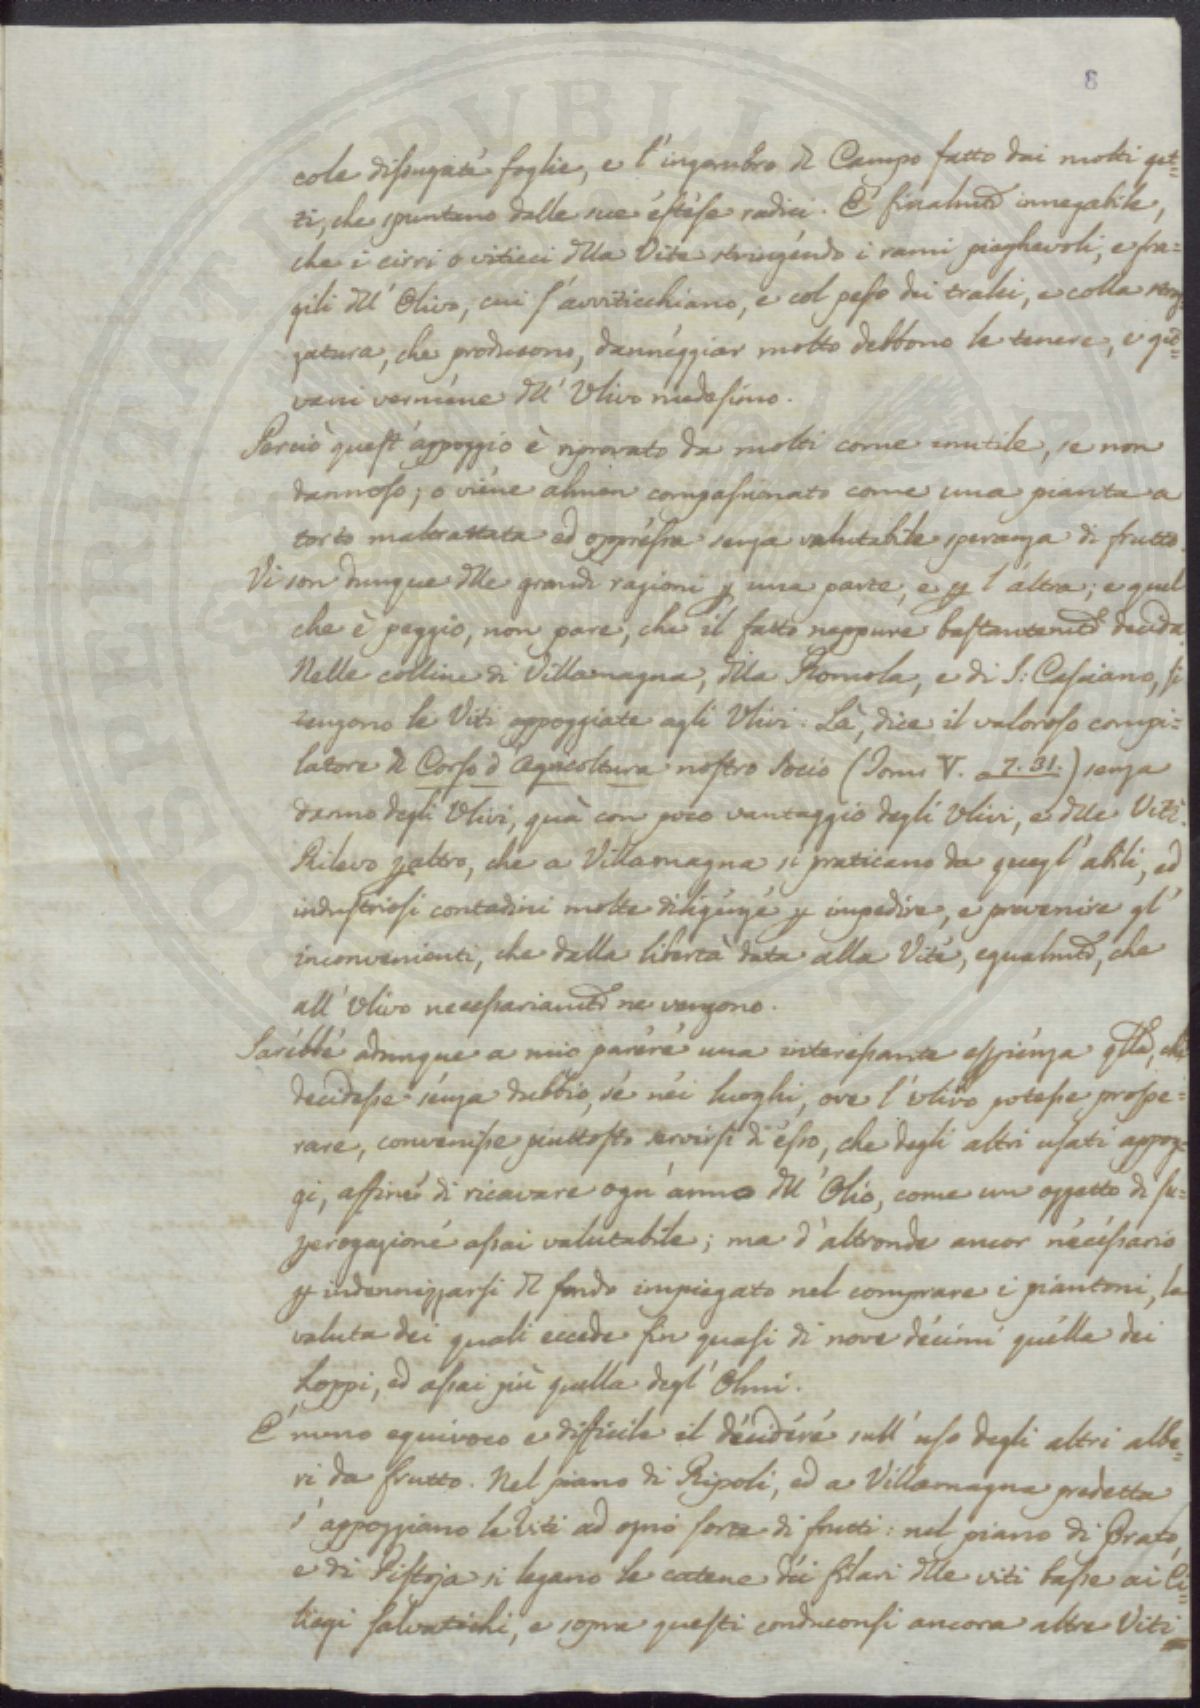 8
cole disseugate foglie, e l'ingombro dl Campo fatto dai molti get=
ti, che spuntano dalle sue estese radici. E' finalmte innegabile,
che i cirri o viticci dlla Vite stringendo i rami pieghevoli, e fra=
gili dll' Olivo, cui s'avviticchiano, e col peso dei tralci, e colla stroz=
zatura, che producono, danneggiar molto debbono le tenere, e gio=
vani vermene dll' Ulivo medesimo.
Perciò quest'appoggio è riprovato da molti come inutile, se non
dannoso; o viene almen compassionato come una pianta a
torto maltrattata ed oppressa senza valutabile speranza di frutto.
Vi son dunque dlle grandi ragioni p una parte, e p l'altra; e quel
che è peggio, non pare, che il fatto neppure bastantemte decida.
Nelle colline di Villamagna, dlla Romola, e di S: Casciano, si
tengono le Viti appoggiate agli Ulivi. Là, dice il valoroso compi=
latore dl Corso d'Agricoltura nostro Socio (Tomo V. a 7. 31.) senza
danno degli Ulivi, quà con poco vantaggio degli Ulivi, e dlle Viti.
Rilevo paltro, che a Villamagna si praticano da quegl'abili, ed
industriosi contadini molte diligenze p impedire, e prevenire gl'
inconvenienti, che dalla libertà data alla Vite, egualmte, che
all' Ulivo necessariamte ne vengono.
Sarebbe adunque a mio parere una interessante espienza qlla, che
decidesse senza dubbio, se nei luoghi, ove l'ulivo potesse prospe=
rare, convenisse piuttosto servirsi di esso, che degli altri usati appog=
gi, affine di ricavare ogn'anno dll' Olio, come un oggetto di su=
perogazione assai valutabile; ma d'altronde ancor necessario
p indennizzarsi dl fondo impiegato nel comprare i piantoni, la
valuta dei quali eccede fin quasi di nove decimi quella dei
Loppi, ed assai più quella degl' Olmi.
E' meno equivoco e difficile il decidere sull' uso degli altri albe=
ri da frutto. Nel piano di Ripoli, ed a Villamagna predetta
s'appoggiano le Viti ad ogni sorte di frutti: nel piano di Prato,
e di Pistoja si legano le catene dei filari dlle viti basse ai Ci=
liegi salvatichi, e sopra questi conduconsi ancora altre Viti